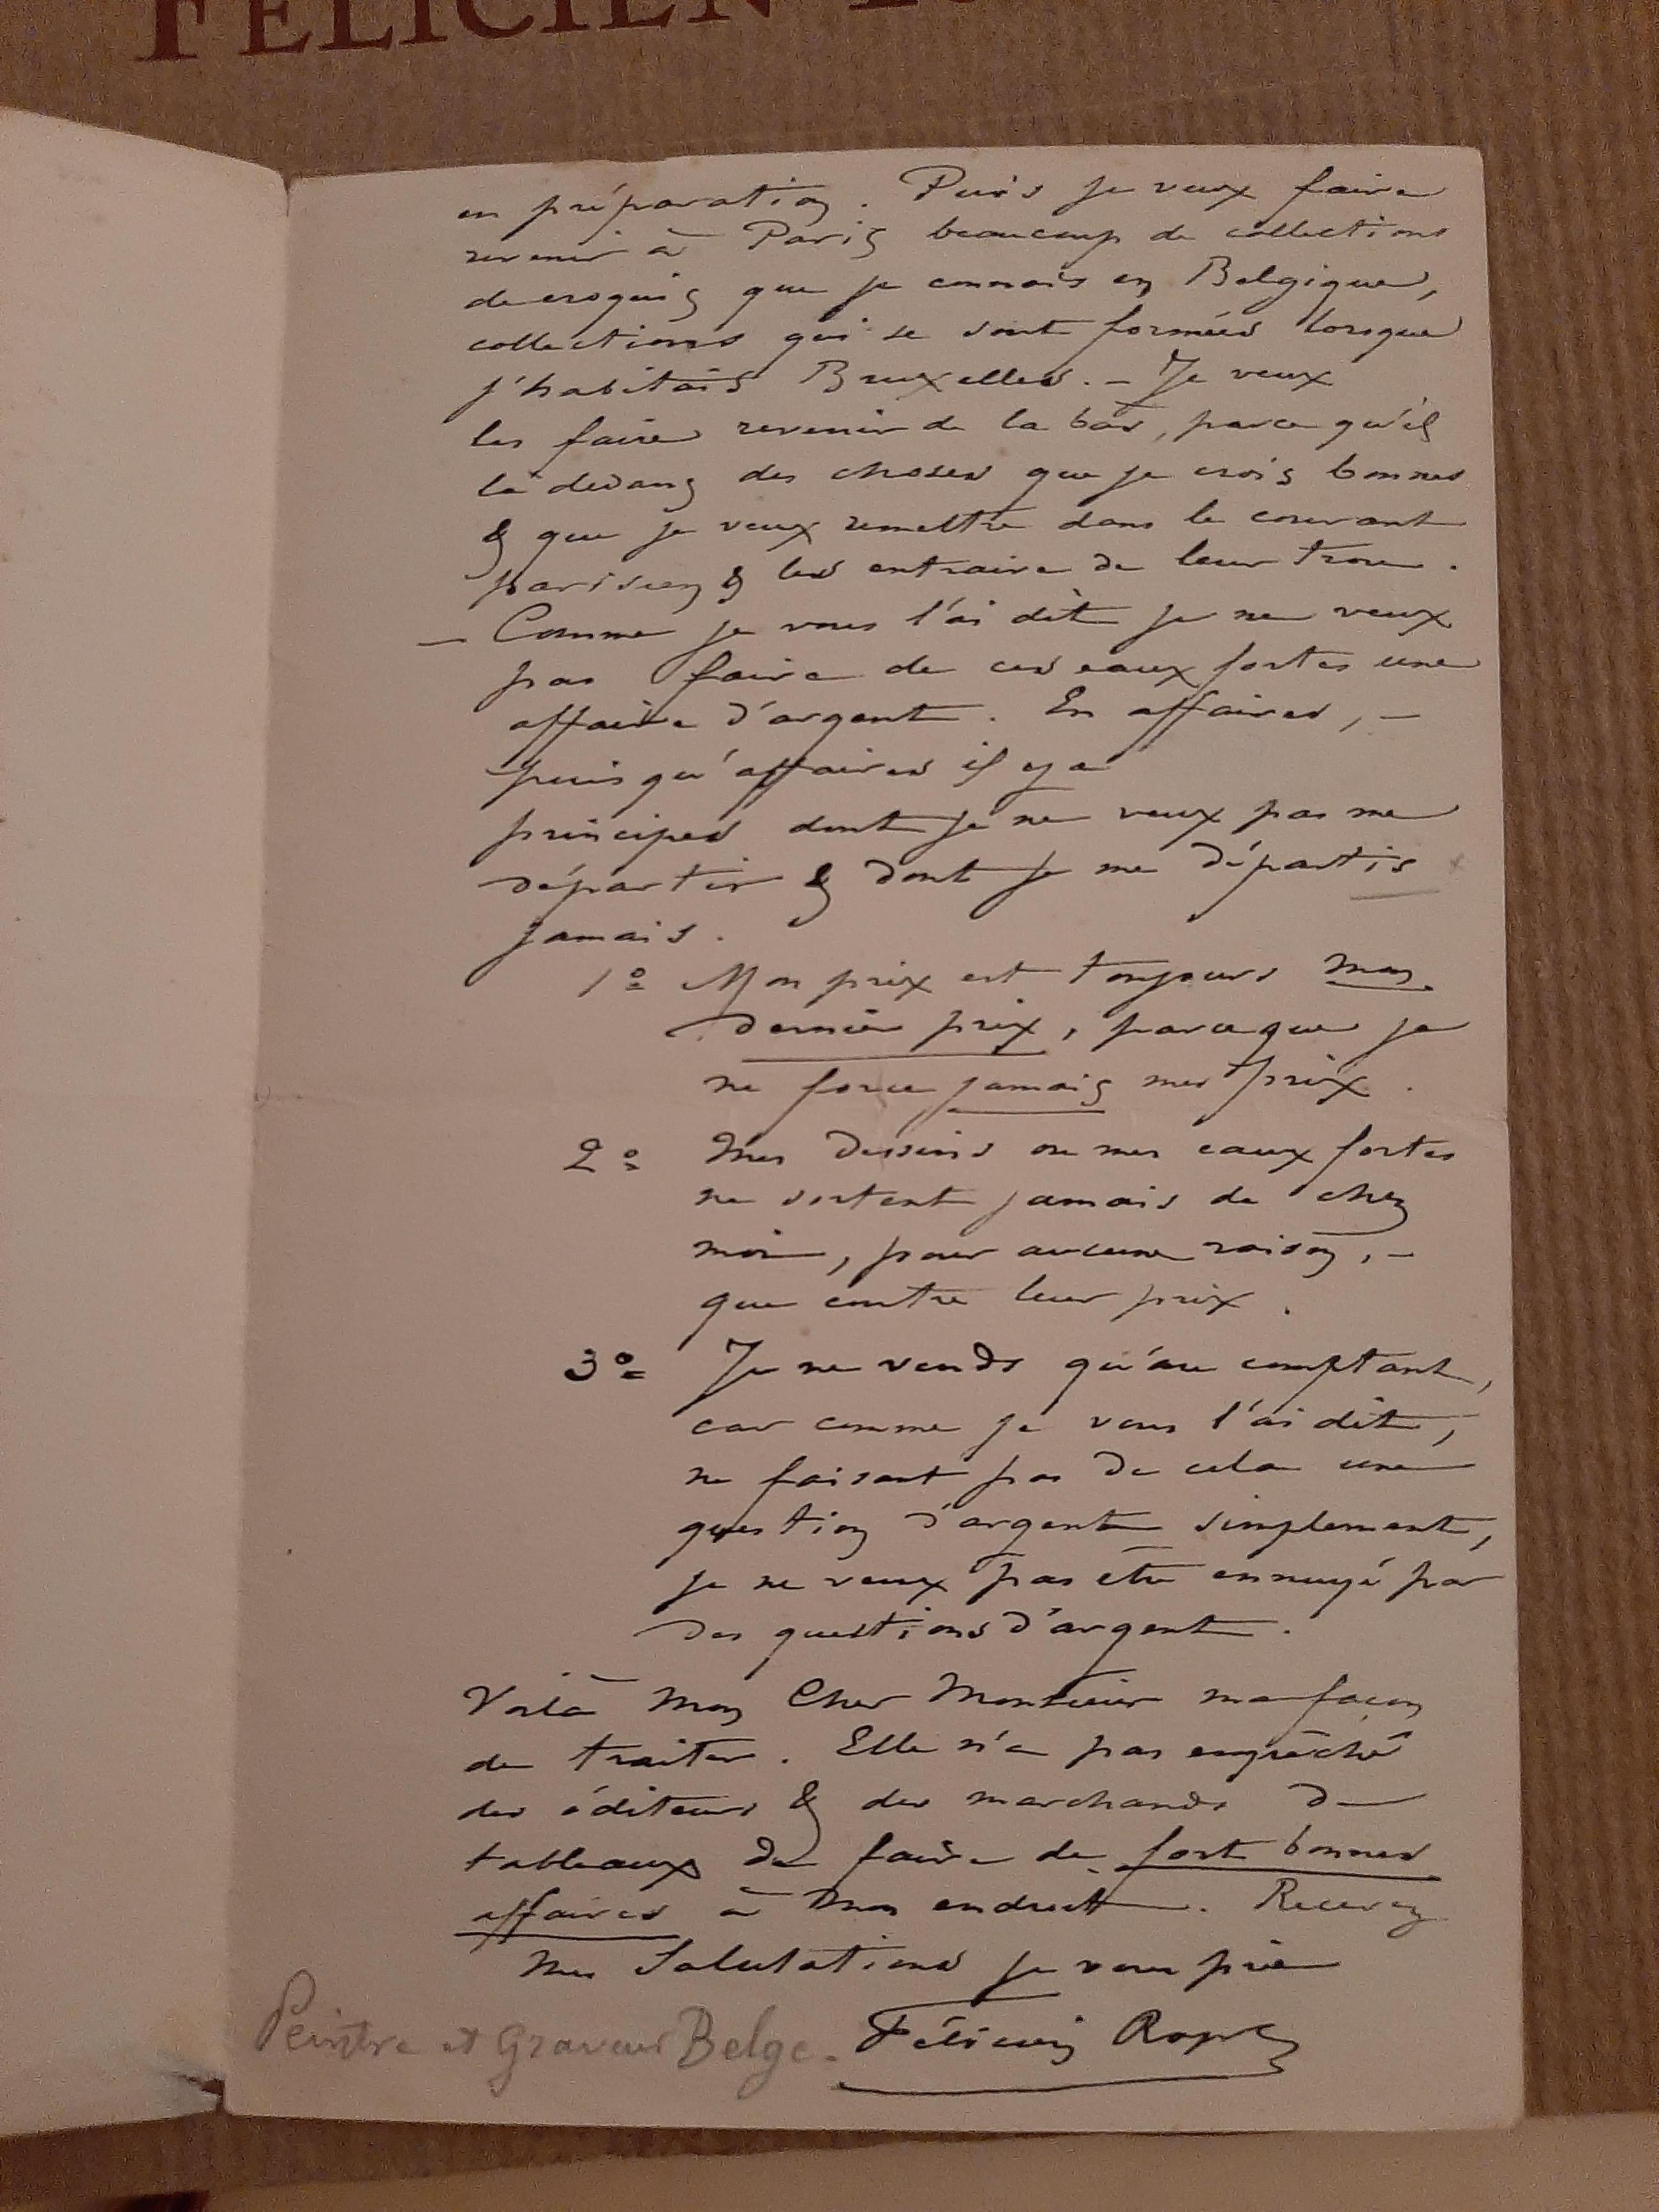 FÉLICIEN
en préparation. Puis je veux faire
revenir à Paris beaucoup de collections
de croquis que je connais en Belgique,
collections qui se sont formées lorsque
j'habitais Bruxelles. – Je veux
les faire revenir de là bas, parce qu'il
là dedans des choses que je crois bonnes
& que je veux remettre dans le courant
parisien & les extraire de leur trou.
– Comme je vous l'ai dit je ne veux
pas faire de ces eaux fortes une
affaire d'argent. En affaires, –
puisqu'affaires il y a
principes dont je ne veux pas me
départir & dont je me départis
jamais.
1º Mon prix est toujours mon
dernier prix, parceque je
ne force jamais mes prix.
2º Mes dessins ou mes eaux fortes
ne sortent jamais de chez
moi, pour aucune raison, –
que contre leur prix.
3º Je ne vends qu'au comptant,
car comme je vous l'ai dit,
ne faisant pas de cela une
question d'argent simplement,
je ne veux pas être ennuyé par
des questions d'argent.
Voilà Mon Cher Monsieur ma façon
de traiter. Elle n'a pas empêché
des éditeurs & des marchands de
tableaux de faire de fort bonnes
affaires à mon endroit. Recevez
mes Salutations je vous prie
Félicien Rops
Peintre et Graveur Belge.